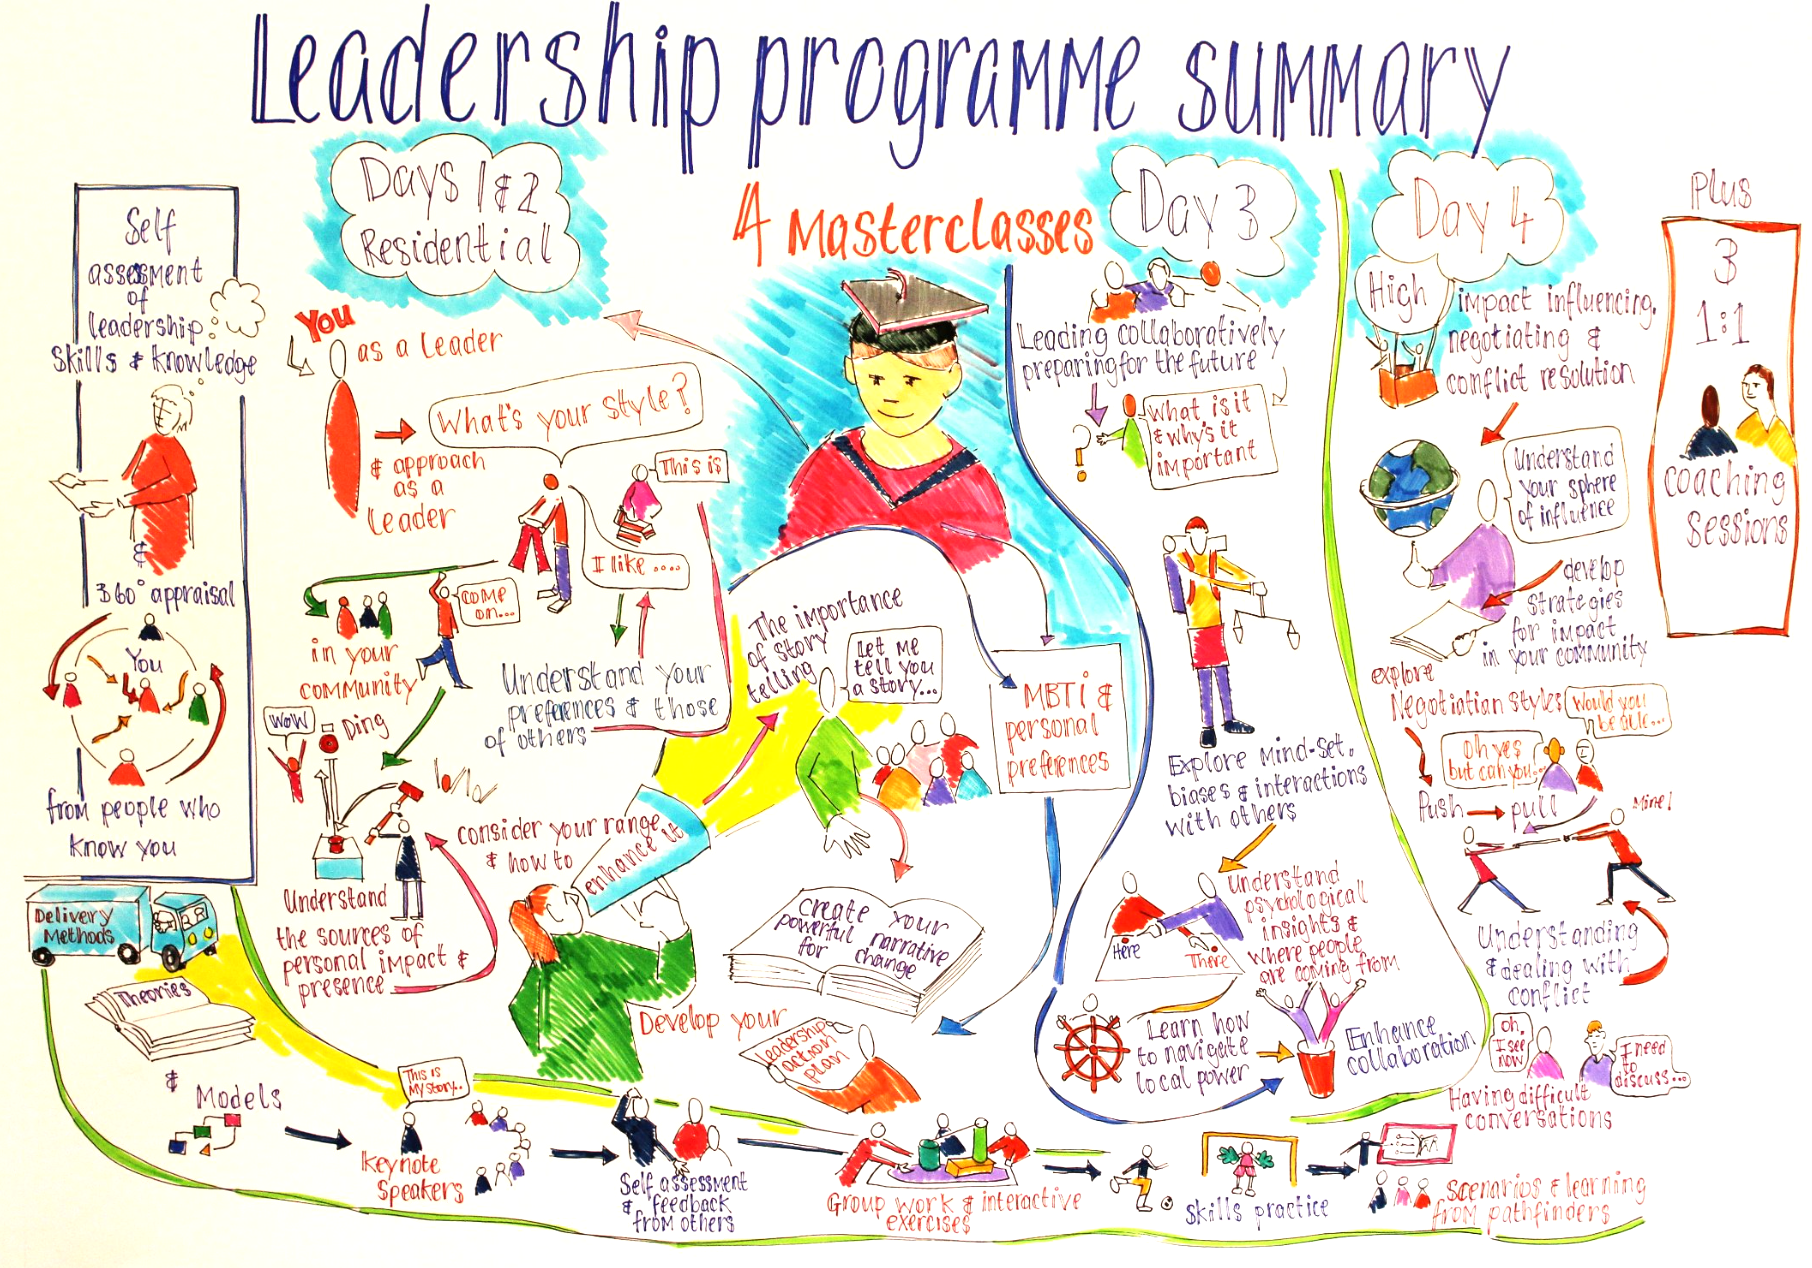 Leadership programme summary
Self
assessment
of
leadership
skills & knowledge
&
360° appraisal
You
from people who
know you
Days 1 & 2
Residential
You
as a leader
What's your style?
& approach
as a
leader
This is
I like ....
come
on...
in your
community
Understand your
preferences & those
of others
wow
Ding
Understand
the sources of
personal impact &
presence
consider your range
& how to
enhance it
4 Masterclasses
The importance
of story
telling
Let me
tell you
a story...
MBTi &
personal
preferences
create your
powerful narrative
for change
Develop your
leadership
action
plan
Day 3
Leading collaboratively
preparing for the future
?
What is it
& why's it
important
Explore mind-set,
biases & interactions
with others
Here
There
Understand
psychological
insights &
where people
are coming from
Learn how
to navigate
local power
Enhance
collaboration
Day 4
High
impact influencing,
negotiating &
conflict resolution
Understand
your sphere
of influence
develop
strategies
for impact
in your community
explore
Negotiation styles
Would you
be able...
Oh yes
but can you...
Push
pull
Mine!
Understanding
& dealing with
conflict
Oh,
I see
now
I need
to
discuss...
Having difficult
conversations
Plus
3
1:1
coaching
sessions
Delivery
Methods
Theories
&
Models
This is
my story..
keynote
speakers
Self assessment
& feedback
from others
Group work & interactive
exercises
skills practice
scenarios & learning
from pathfinders